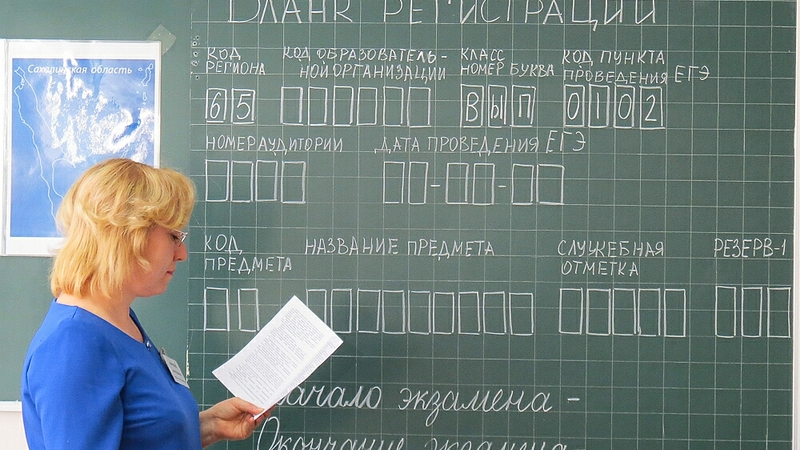 БЛАНК РЕГИСТРАЦИИ
Сахалинская область
КОД РЕГИОНА
КОД ОБРАЗОВАТЕЛЬ-
НОЙ ОРГАНИЗАЦИИ
КЛАСС
НОМЕР БУКВА
КОД ПУНКТА
ПРОВЕДЕНИЯ ЕГЭ
65
ВЫП
0102
НОМЕР АУДИТОРИИ
ДАТА ПРОВЕДЕНИЯ ЕГЭ
- -
КОД ПРЕДМЕТА
НАЗВАНИЕ ПРЕДМЕТА
СЛУЖЕБНАЯ
ОТМЕТКА
РЕЗЕРВ-1
Начало экзамена -
Окончание экзамена -